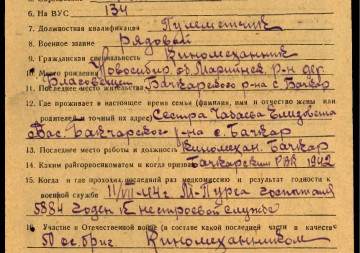 6. На ВУС 134
7. Должностная квалификация Пулеметчик
8. Военное звание Рядовой
9. Гражданская специальность Киномеханик
10. Место рождения Новосибир. об. Мариинск. р-н дер.
Благовещен
11. Последнее место жительства Бакчарского р-на с. Бакчар
12. Где проживает в настоящее время семья (фамилия, имя и отчество жены или
родителей и точный их адрес) Сестра Елизавета
Вас. Бакчарского р-на с. Бакчар
13. Последнее место работы и должность Киномехан. Бакчар
14. Каким райгорвоенкоматом и когда призван Бакчарским РВК 1942
15. Когда и где проходил последний раз медкомиссию и результат годности к
военной службе 11/VII-44 г. М-Пурга госпиталь
5884 годен к нестроевой службе
16. Участие в Отечественной войне (в составе какой последней части в качестве
50 ос. бриг Киномехаником